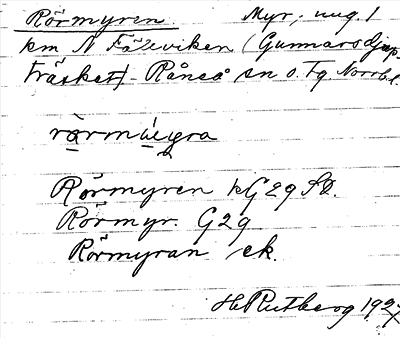 Rörmyren Myr, ung. 1
km N Fäxviken (Gunnarsdjup-
träsket) - Råneå sn o. Tg. Norrb. l.
Rörmyren kG29 SO.
Rörmyr. G29
Rörmyran ek.
H Rutberg 1927